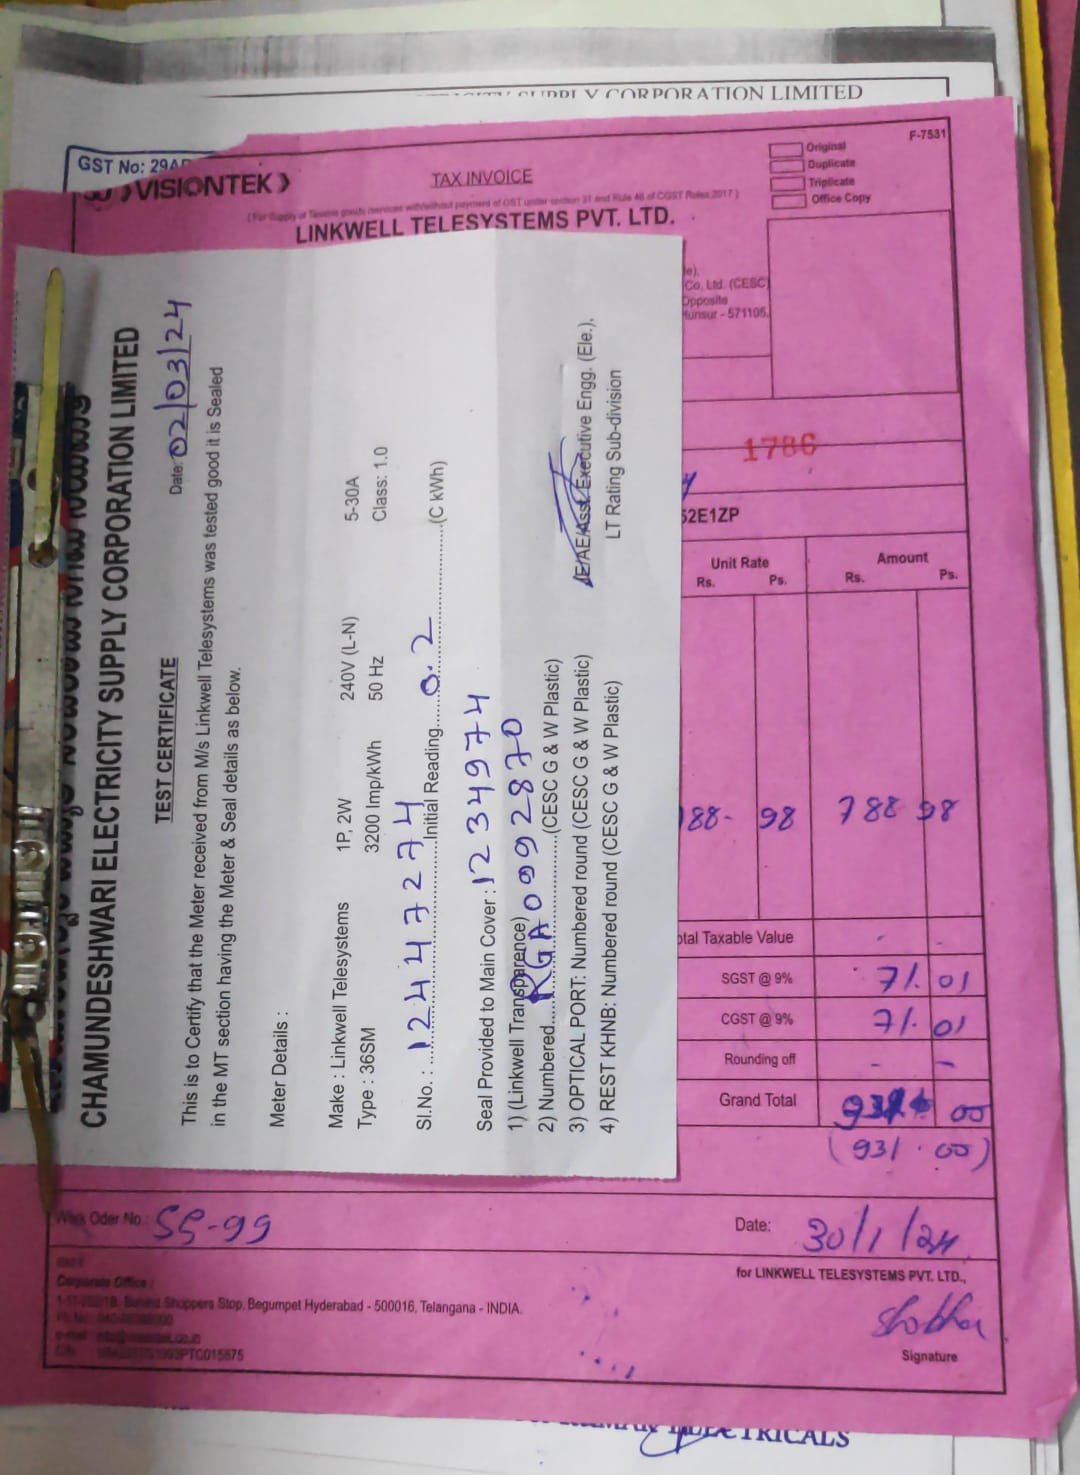 SUPPLY CORPORATION LIMITED
F-7531
GST No: 29A
VISIONTEK
TAX INVOICE
Original
Duplicate
Triplicate
Office Copy
(For Supply of Taxable goods /services with/without payment of GST under section 31 and Rule 46 of CGST Rules 2017)
LINKWELL TELESYSTEMS PVT. LTD.
le),
Co. Ltd. (CESC)
Opposite
Hunsur - 571105.
1786
52E1ZP
Unit Rate
Amount
Rs. Ps. Rs. Ps.
88- 98 788 98
Taxable Value - -
SGST @ 9% 71. 01
CGST @ 9% 71. 01
Rounding off - -
Grand Total 931 00
(931.00)
CHAMUNDESHWARI ELECTRICITY SUPPLY CORPORATION LIMITED
Date: 02/03/24
TEST CERTIFICATE
This is to Certify that the Meter received from M/s Linkwell Telesystems was tested good it is Sealed
in the MT section having the Meter & Seal details as below.
Meter Details :
Make : Linkwell Telesystems 1P, 2W 240V (L-N) 5-30A
Type : 36SM 3200 Imp/kWh 50 Hz Class: 1.0
Sl.No. : 12447274 Initial Reading 0.2 (C kWh)
Seal Provided to Main Cover : 1234974
1) (Linkwell Transparence)
2) Numbered RGA0992870 (CESC G & W Plastic)
3) OPTICAL PORT: Numbered round (CESC G & W Plastic)
4) REST KHNB: Numbered round (CESC G & W Plastic)
AE/AE/Asst. Executive Engg. (Ele.),
LT Rating Sub-division
Work Oder No.: SS-99
Date: 30/1/24
for LINKWELL TELESYSTEMS PVT. LTD.,
Corporate Office :
Behind Shoppers Stop, Begumpet Hyderabad - 500016, Telangana - INDIA.
PTC015675
Shobha
Signature
ELECTRICALS